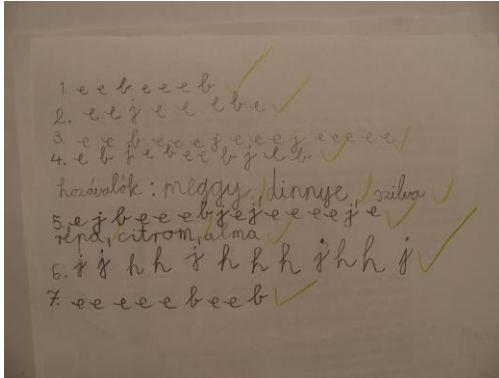 1. e e b e e e b
2. e e j e e e b e
3. e e b e e e j e e e j e e e e e
4. e b j e b e e b j e b
hozávalók: meggy, dinnye, szilva
5. e j b e e e b j e j e e e e j e
répa, citrom, alma
6. j j h h j h h h j h h j
7. e e e e e b e e b